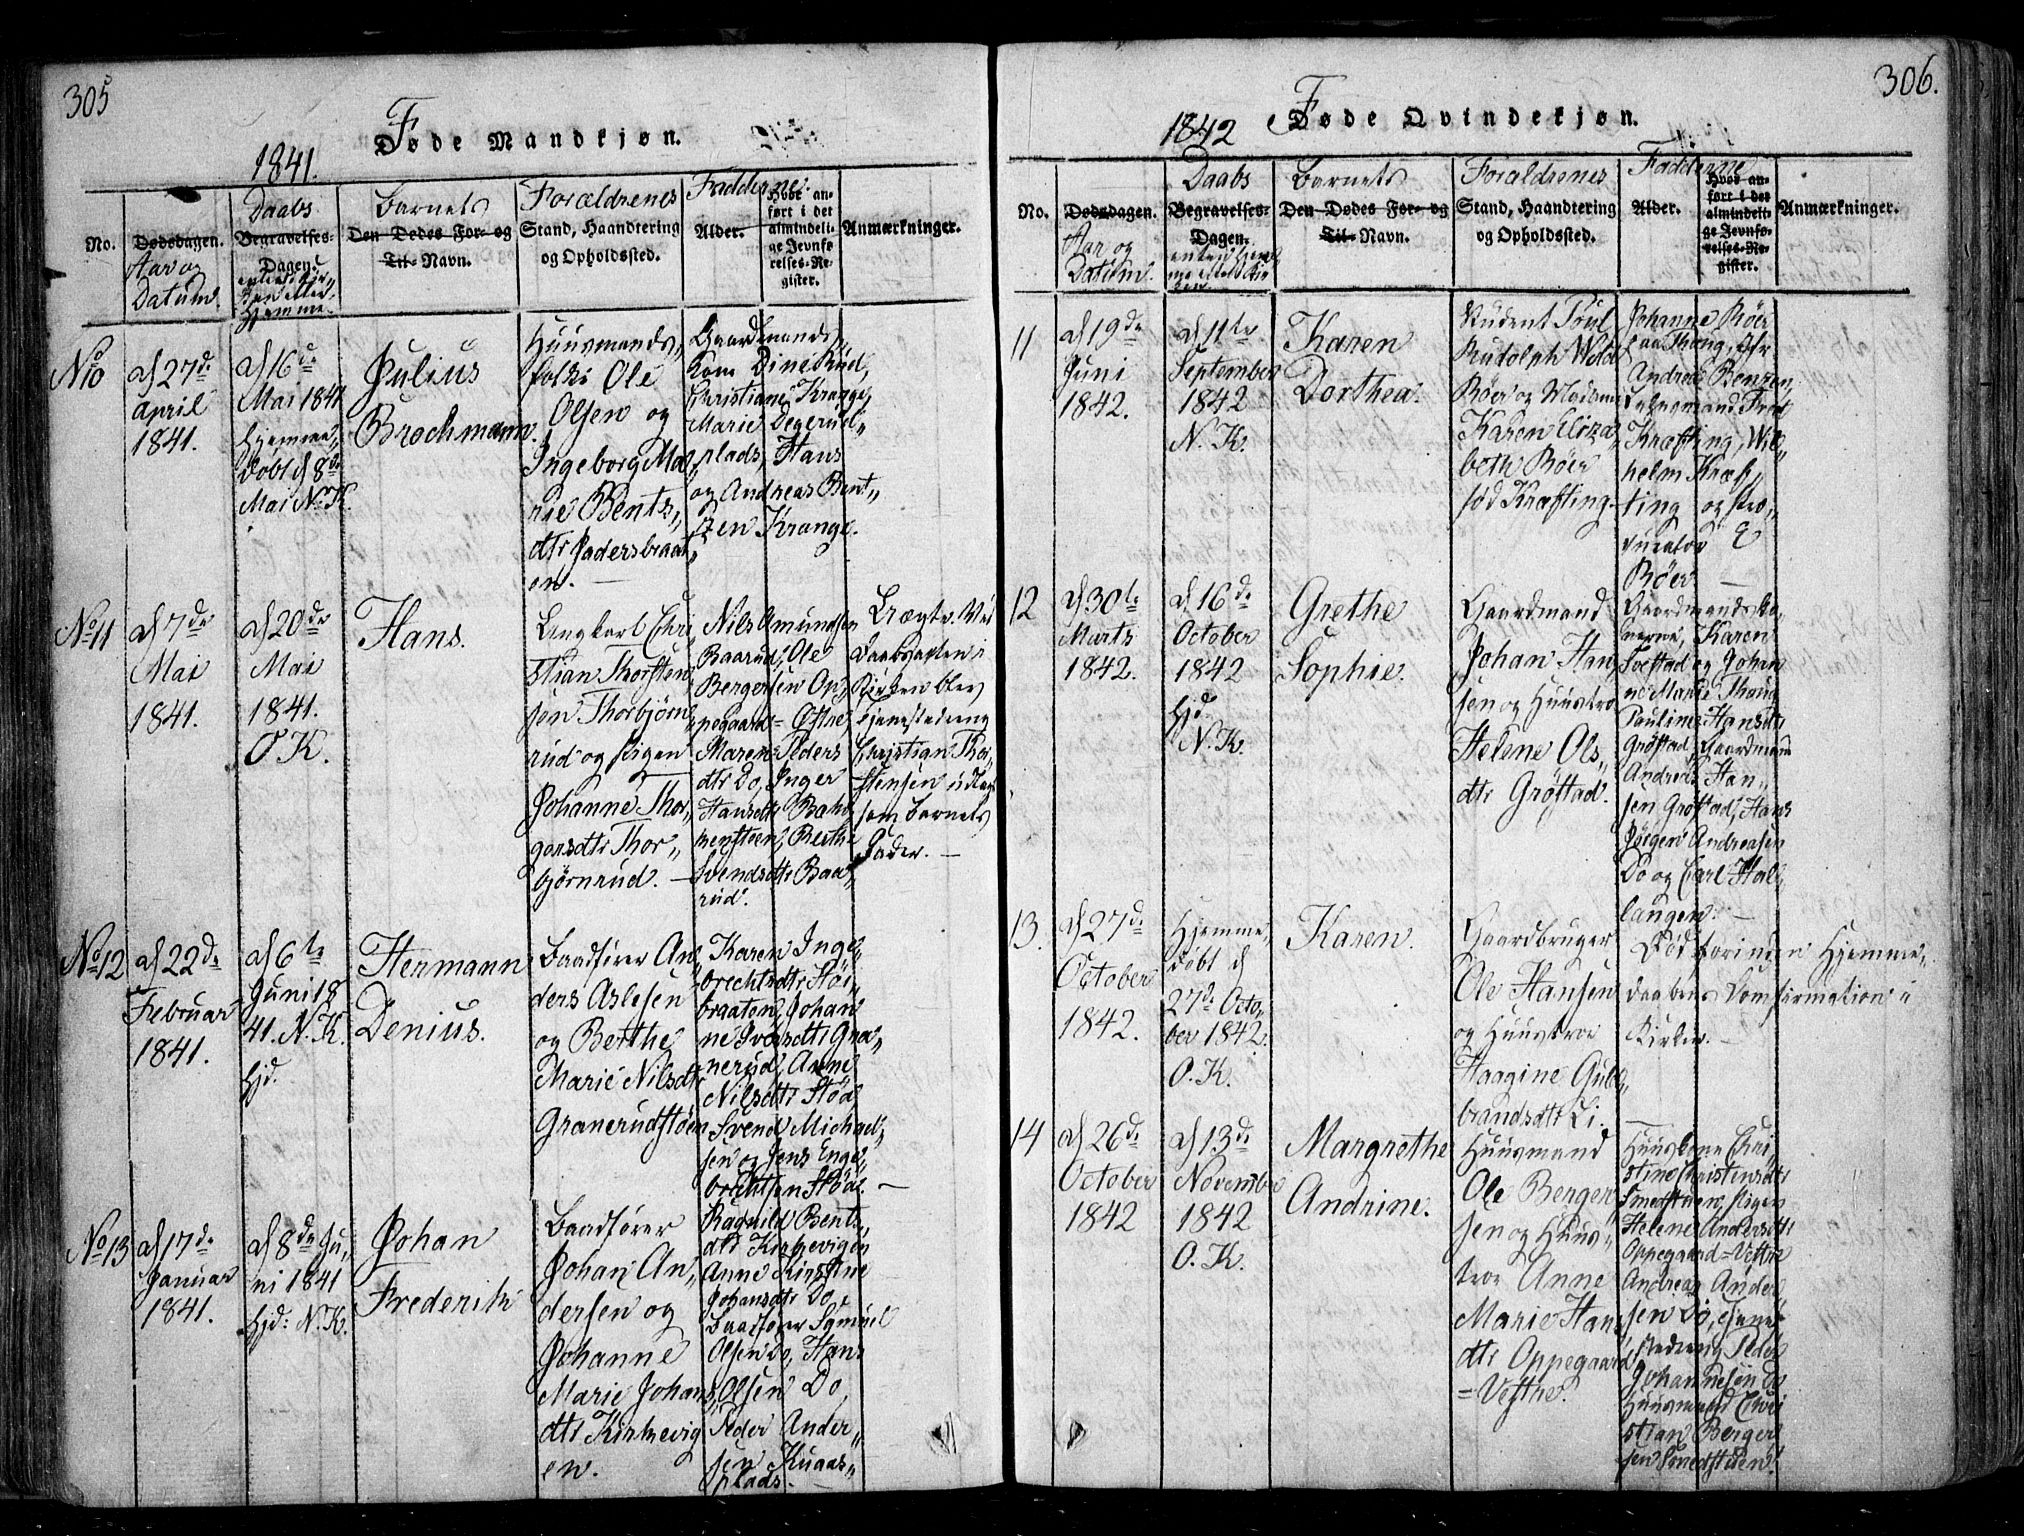 305
Føde Mandkjøn.
1841.
No.
Dødsdagen.
Aar og
Datum.
Daabs
Begravelses-
Dagen
enten i Kir„
ken eller
Hjemme.
Barnets
Den Dødes For- og
Til- Navn.
Forældrenes
Stand, Haandtering
og Opholdssted.
Fadderne.
Alder.
Hvor an-
ført i det
almindeli-
ge Jevnfø-
relses-Re-
gister.
Anmærkninger.
No 10
d 27de
April
1841.
d 16de
Mai 1841
Hjemme„
døbt d 8de
Mai N. K.
Julius
Brochmann.
Huusmands„
folk Ole
Olsen og
Ingeborg Ma„
rie Bents„
dtr Padersbraat„
en. —
Gaardmands„
Kom Dine Rud,
Christiane Krange,
Marie Degerud„
plads, Hans
og Andreas Bent„
zen Krange.
No 11
d 7de
Mai
1841.
d 20de
Mai
1841.
O K.
Hans.
Ungkarl Chri
stian Thorsten,
sen Thorbjørn
rud og Pigen
Johanne Thor,
gersdtr Thor„
bjørnrud. —
Nils Amundsen
Baarud, Ole
Bergersen Op,
pegaard = Østre
Maren Peders
dtr Do, Inger
Hansdtr Bæk,
kenstøen, Berthe
Svendsdtr Baa„
rud.
Lægtr. Ved
Daabsacten i
Kirken blev
Tjenestedreng
Christian Thor,
stensen udlagt
som Barnets
Fader. —
No 12
d 22de
Februar
1841.
d 6te
Juni 18
41. N. K.
Hjd.
Hermann
Denius.
Baadfører An,
ders Aslesen
og Berthe
Marie Nilsdtr
Granerudstøen
Karen Inge,
brechtsdtr Stöi„
braaten, Johan
ne Iversdtr Gra,
nerud, Anne
Nilsdtr Stöa
Svend Michael„
sen og Jens Enge„
brechtsen Stöa. —
No 13
d 17de
Januar
1841.
d 8de Ju,
ni 1841
Hjd: N. K.
Johan
Frederik
Baadfører
Johan An,
dersen og
Johanne
Marie Johans
dtr Kirkevig
en.
Ragnild Bents,
dtr Kirkevigen
Anne Kirstine
Johansdtr Do,
Baadfører Samuel
Olsen Do, Hans
Olsen Do,
Peder Ander„
sen Knaas„
plads.
306.
Føde Qvindekjøn.
1842
No.
Dødsdagen.
Aar og
Datum.
Daabs
Begravelses-
Dagen.
enten Hjem
me eller Kir
ken
Barnets
Den Dødes For- og
Til- Navn.
Forældrenes
Stand, Haandtering
og Opholdssted.
Fadderne
Alder.
Hvor an-
ført i det
almindeli-
ge Jevnfø-
relses-Re-
gister.
Anmærkninger.
11
d 19de
Juni
1842.
d 11te
September
1842
N. K.
Karen
Dorthea.
Student Poul
Rudolph Wold
Røer og Madame
Karen Eliza,
beth Røer
fød Kræfting.
Johanne Røer
paa Thoug, Jfr
Andrea Benzen,
Lehnsmand Fred
Kræfting, Wil„
helm Kræf„
ting og Pro„
curator E
Røer. —
12
d 30te
Marts
1842.
d 16de
October
1842
Hjd.
N. K.
Grethe
Sophie.
Gaardmand
Johan Han,
sen og Huustro
Helene Ols„
dtr Grøstad.
Gaardmandsko„
nerne, Karen
Toestad og Johan
ne Marie Thoug
Pauline Hansdtr
Grøstad, Gaardmænd
Andreas Han„
sen Grøstad, Hans
Jørgen Andreasen
Do og Carl Hal,
langen. —
13.
d 27de
October
1842.
Hjemme„
døbt d
27de Octo„
ber 1842.
O. K.
Karen.
Gaardbruger
Ole Hansen
og Huustroe
Haagine Gul„
brandsdtr Li.
Død forinden Hjemme„
daabens Confirmation i
Kirken. —
14
d 26de
October
1842
d 13de
November
1842
O. K.
Margrethe
Andrine.
Huusmand
Ole Berger„
sen og Huus„
troe Anne
Marie Hans
dtr Oppegaard
=Vestre.
Huuskone Chri
stine Christensdtr
Smedstuen, Pigen
Helene Andersdtr
Oppegaard=Vestre
Andreas Ander
sen Do, Tjene
stedreng Peder
Johannesen Do
Huusmand Chri
stian Berger
sen Smedstuen.